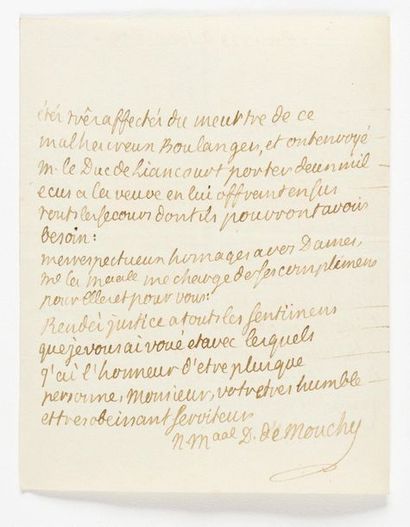 étér très affectés du meurtre de ce
malheureux Boulanger, et ont envoyé
M. le Duc de Liancourt porter deux mil
ecus a la veuve en lui offrant en sus
touts les secours dont ils pouvront avoir
besoin:
mes respectueux homages a vos Dames,
Me la Maaale me charge de ses complimens
pour elles et pour vous.
Rendéz justice a touts les sentimens
que je vous ai voué et avec lesquels
j'ai l'honneur d'etre plus que
personne, Monsieur, votre tres humble
et tres obeissant serviteur
N Maal D. de Mouchy